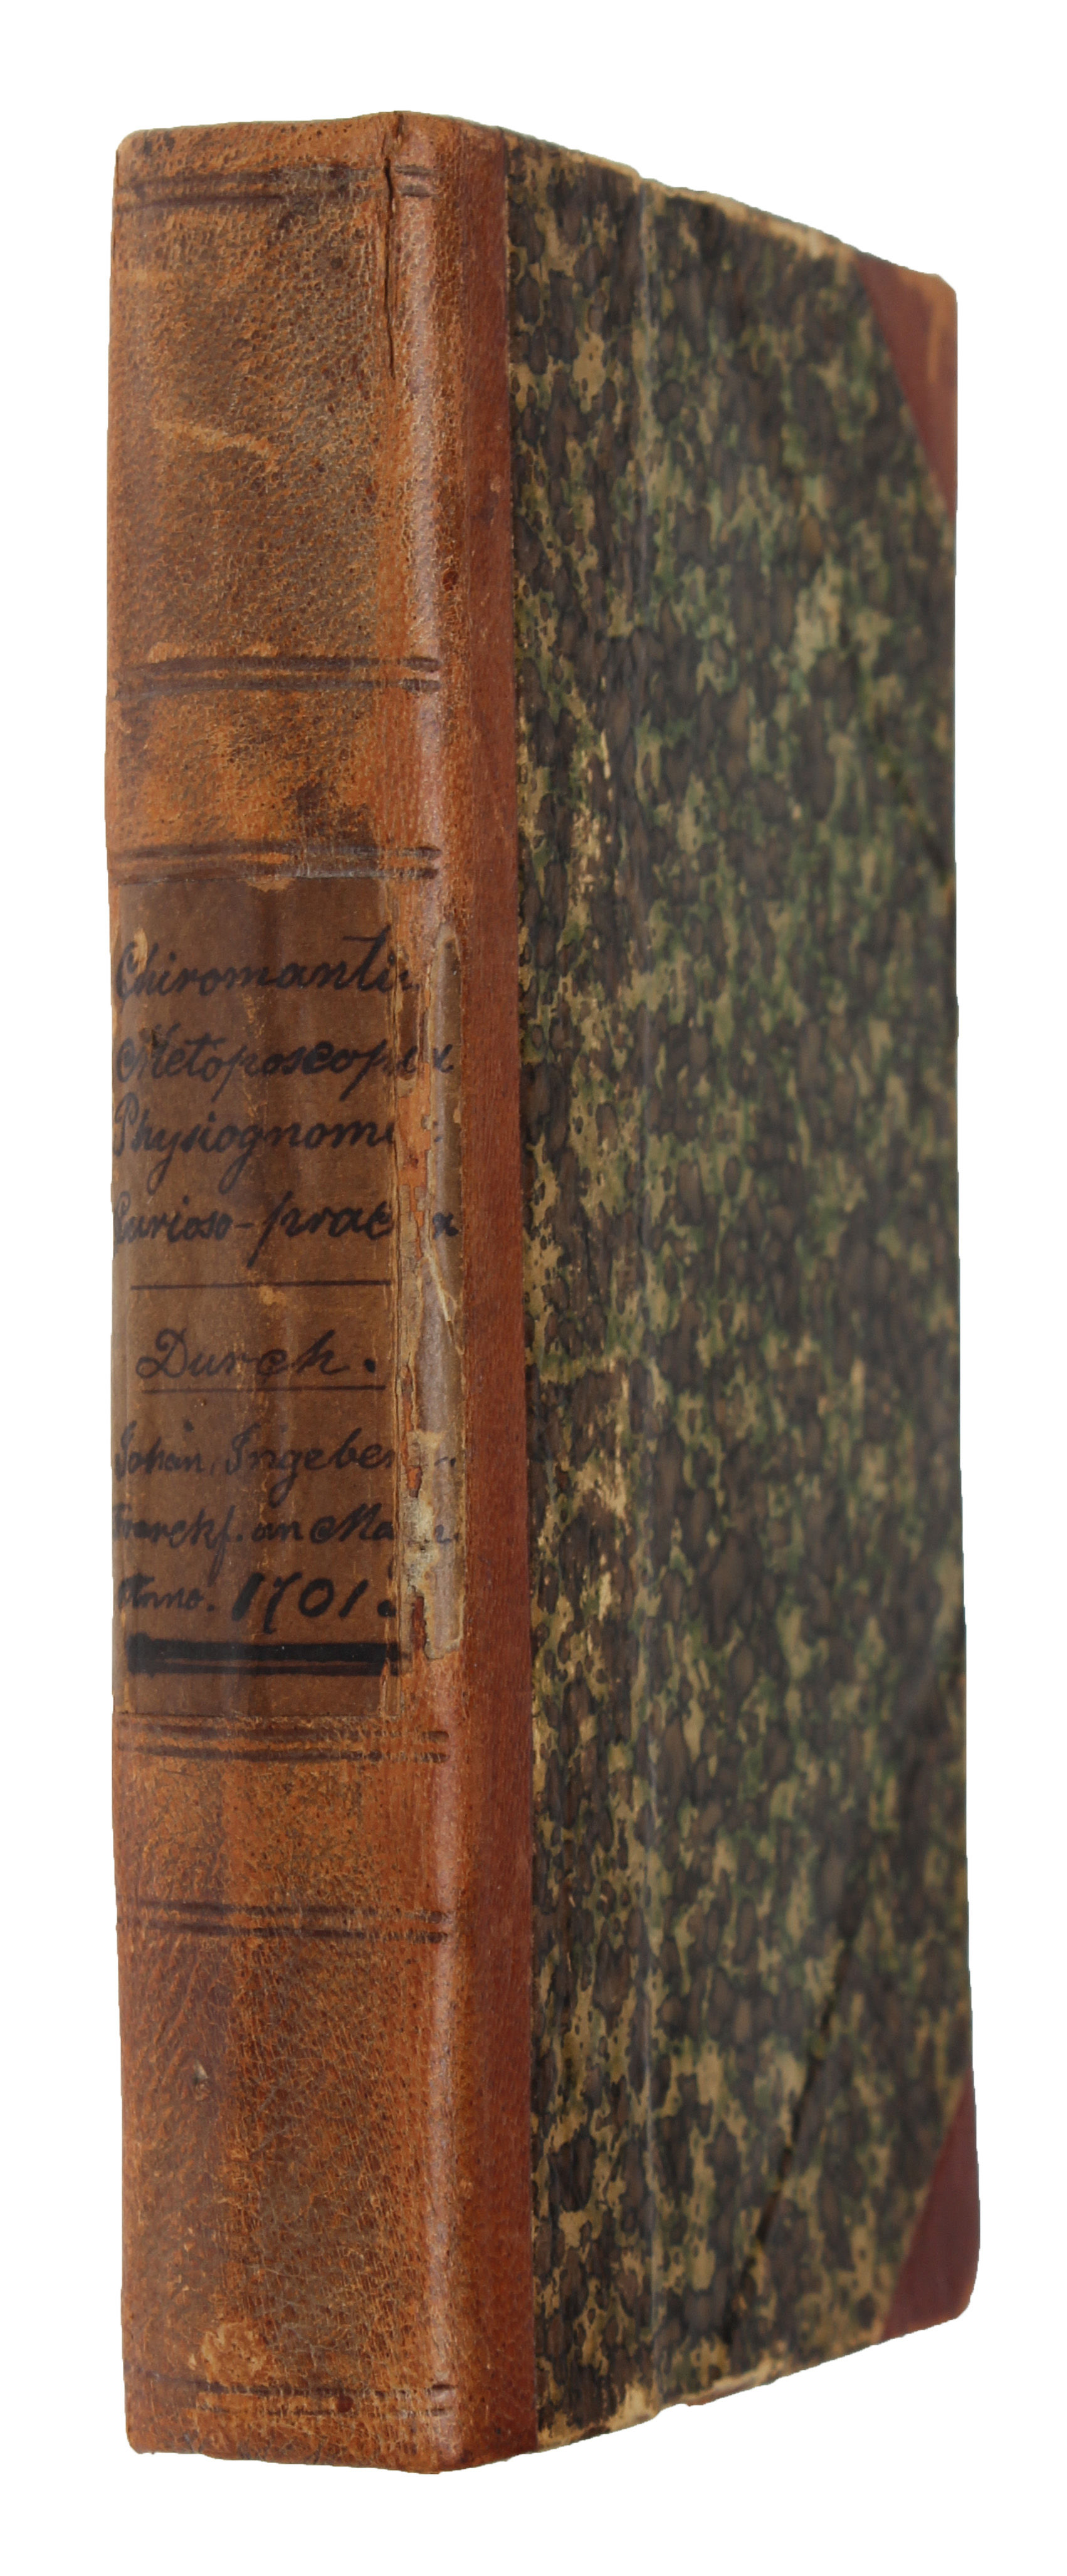 Chiromantia
Metoposcopia
Physiognomi
Curioso-pract a
Durch.
Johan, Ingeber
Franckf. am Ma
Anno. 1701.